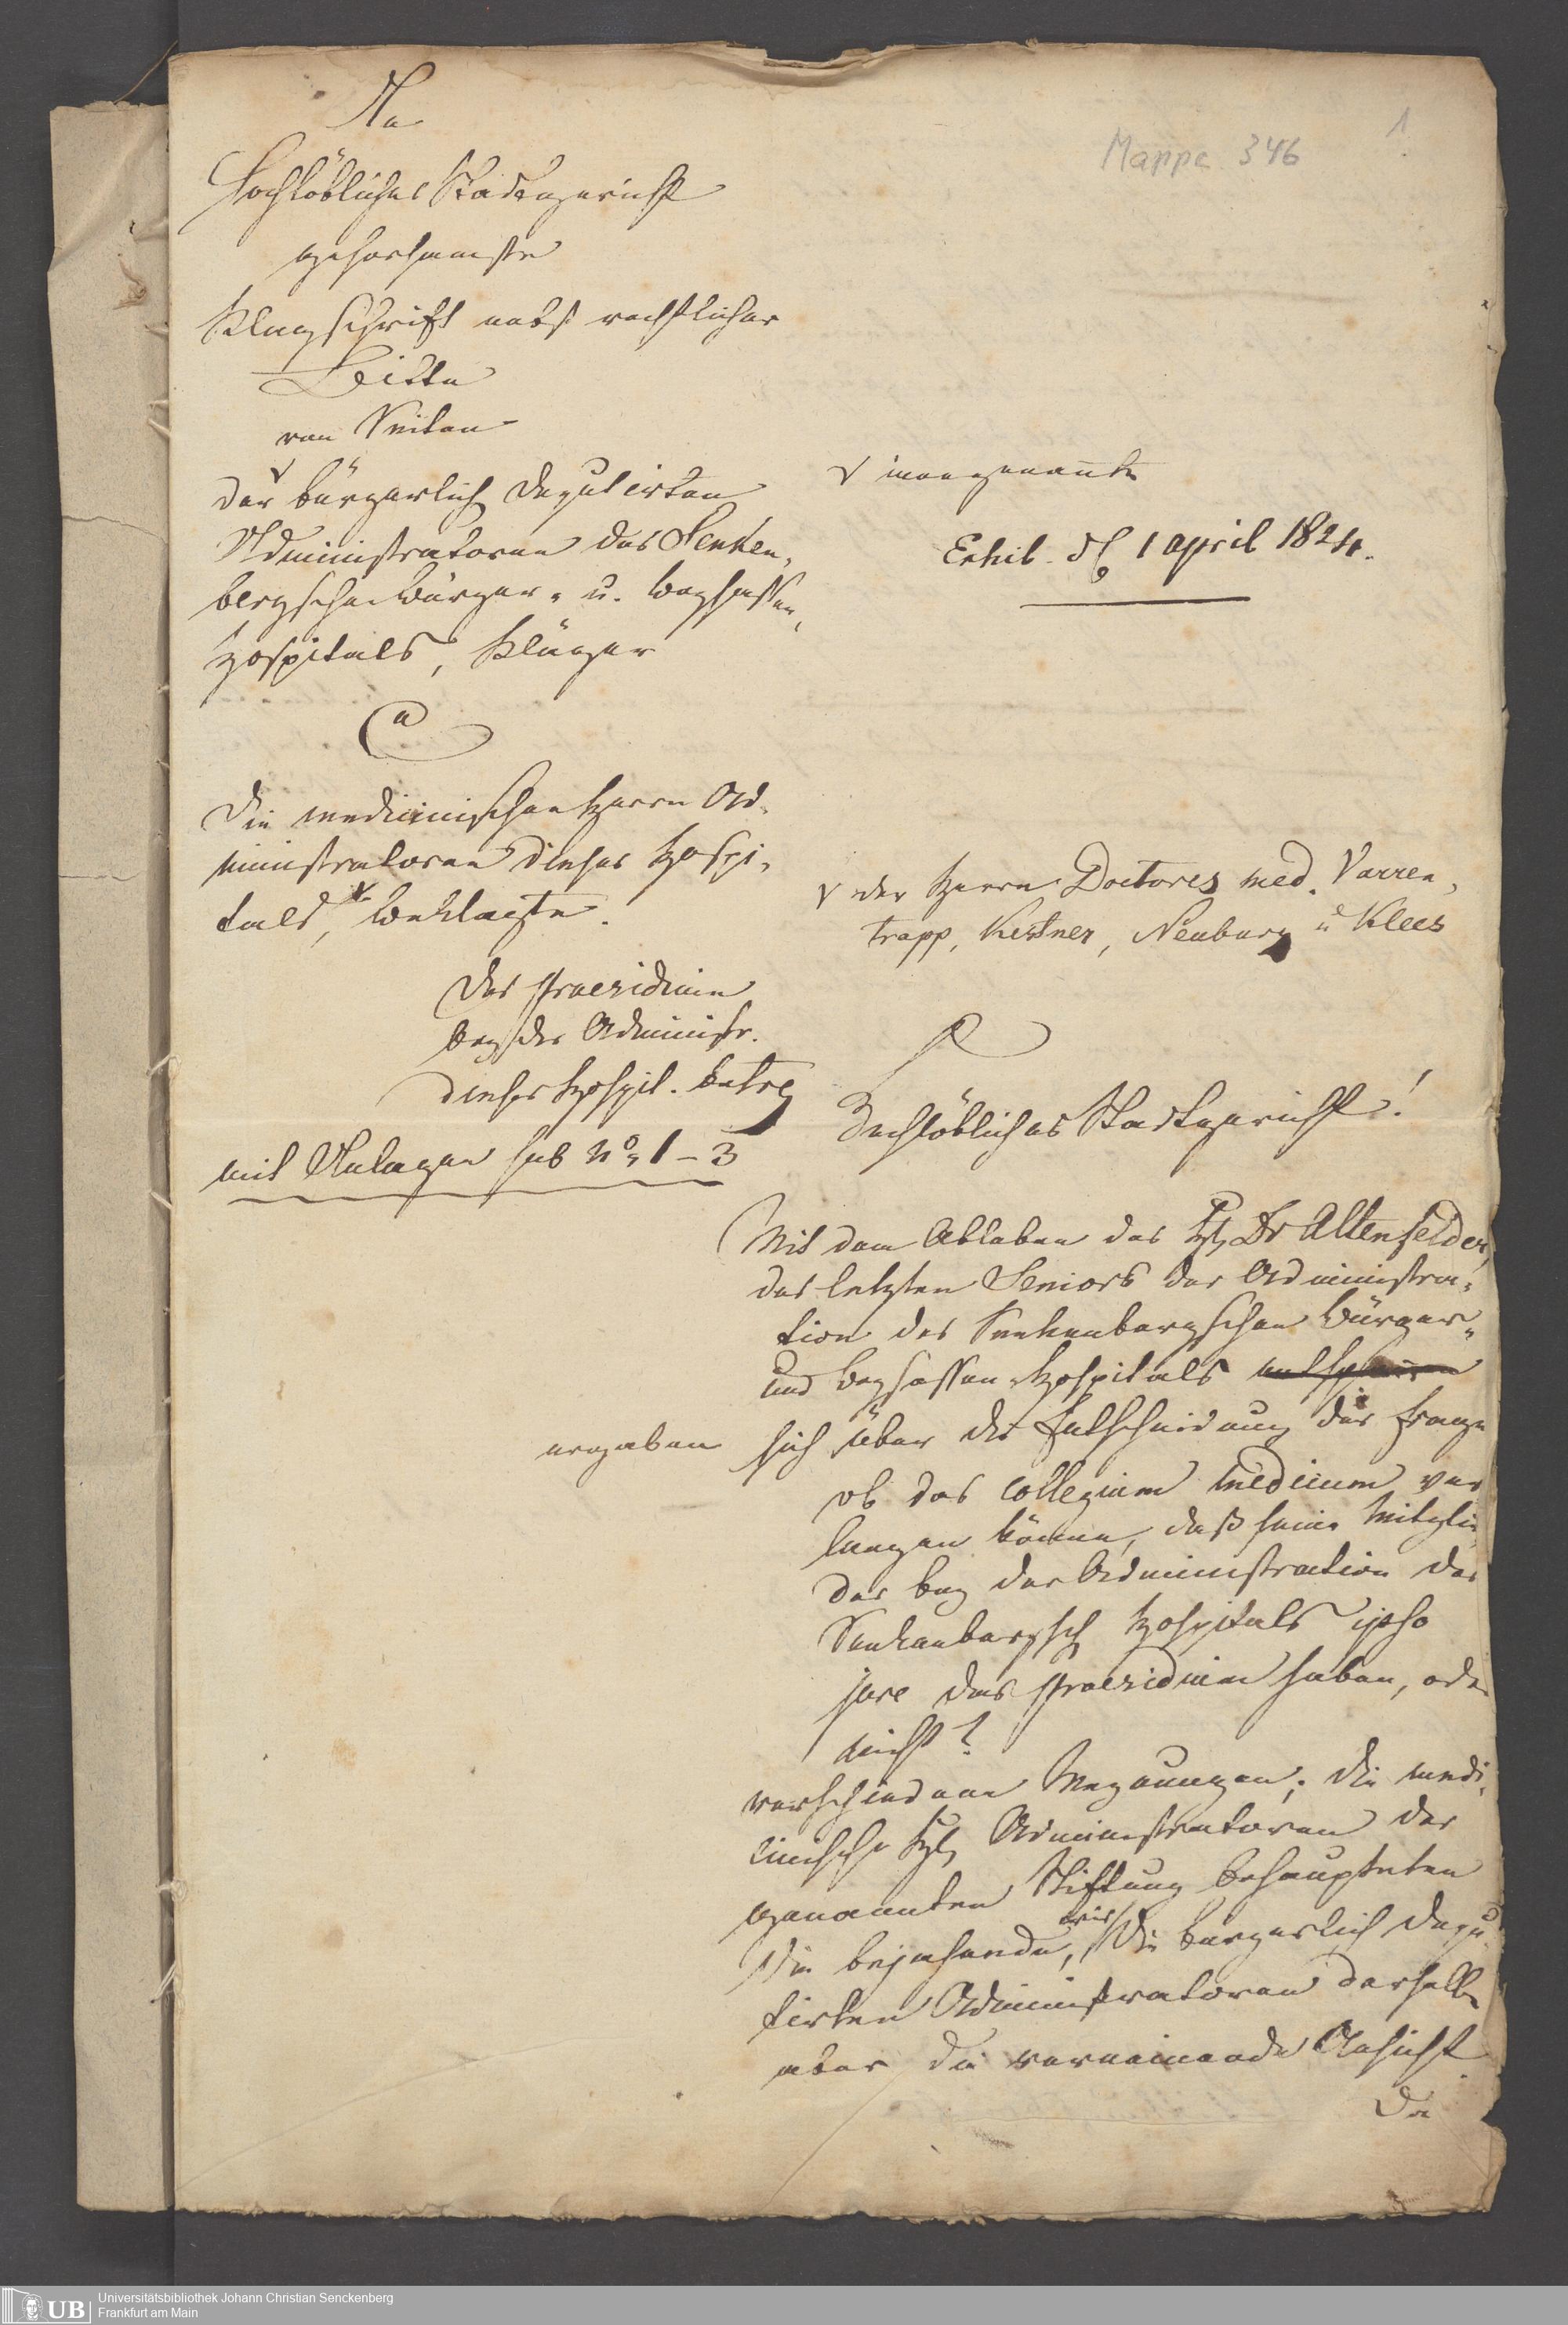 Mappe 346
1
An
Hochlöbliches Stadtgericht
gehorsamste
Klagschrift nebst rechtlicher
Bitte
von Seiten
der bürgerlich deputirten
Administratoren des Senken,
bergschen Bürger- u. Beysassen,
Hospitals, Kläger
ca
die medicinischen Herrn Ad,
ministratoren dieses Hospi,
tals, Beklagte.
das Praesidium
bey der Administr.
dieses Hospit. betr
mit Anlagen sub No 1-3
innengenannte
Exhib. d 1 april 1824.
der Herrn Doctores med. Varren,
trapp, Kestner, Neuburg u Klees
P
Hochlöbliches Stadtgericht!
Mit dem Ableben des H Dr Altenfelder,
des letzten Seniors der Administra,
tion des Senkenbergschen Bürger-
und Beysassen Hospitals
ergaben sich über die Entscheidung der Frage
ob das collegium medicum ver
langen könne, daß seine Mitglie
der bey der Administration des
Senkenbergsch Hospitals ipso
jure das Praesidium haben, oder
nicht?
verschiedene Meynungen; die medi,
cinische H Administratoren der
genannten Stiftung behaupteten
die bejahende, wir die bürgerlich depu
tirten Administratoren derselben
aber die verneinende Ansicht.
Da
Universitätsbibliothek Johann Christian Senckenberg
Frankfurt am Main
UB